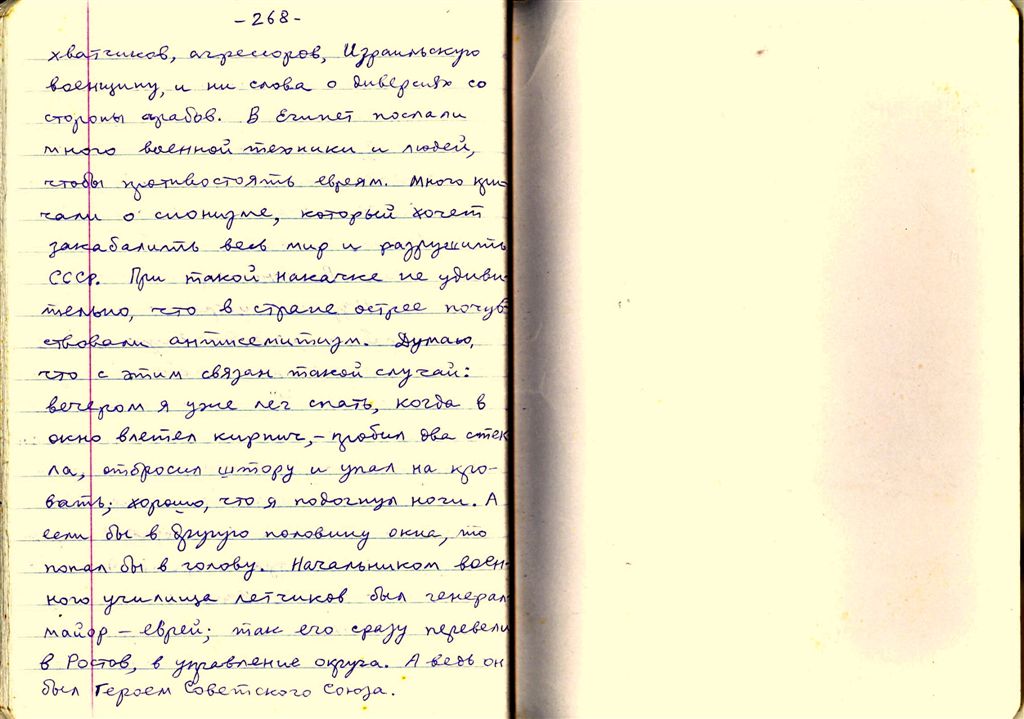 -268-
хватчиков, агрессоров, Израильскую
военщину, и ни слова о диверсиях со
стороны арабов. В Египет послали
много военной техники и людей,
чтобы противостоять евреям. Много кри-
чали о сионизме, который хочет
закабалить весь мир и разрушить
СССР. При такой накачке не удиви-
тельно, что в стране острее почув-
ствовали антисемитизм. Думаю,
что с этим связан такой случай:
вечером я уже лёг спать, когда в
окно влетел кирпич, – пробил два стек
ла, отбросил штору и упал на кро-
вать; хорошо, что я подогнул ноги. А
если бы в другую половину окна, то
попал бы в голову. Начальником воен-
ного училища летчиков был генерал
майор – еврей; так его сразу перевели
в Ростов, в управление округа. А ведь он
был Героем Советского Союза.